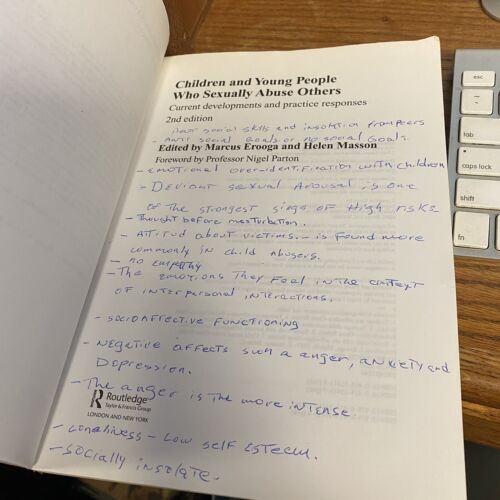 Children and Young People
Who Sexually Abuse Others
Current developments and practice responses
2nd edition
Poor social skills and insolation from peers
- Anti social Goals or no social Goals.
Edited by Marcus Erooga and Helen Masson
Foreword by Professor Nigel Parton
- Emotional over-identification with children
- Deviant sexual Arousal is one
of the strongest sings of High risks
- Thought before masturbation.
- Attitud about victims. - is found more
commonly in child Abusers.
- no empathy
- The emotions They Feel in the context
of interpersonal interactions.
- socioaffective functioning
- negative affects such a anger, anxiety and
Depression.
- The anger is the more intense
Routledge
Taylor & Francis Group
LONDON AND NEW YORK
- Loneliness - Low self esteem.
- Socially insolate.
esc
~
tab
caps lock
shift
fn